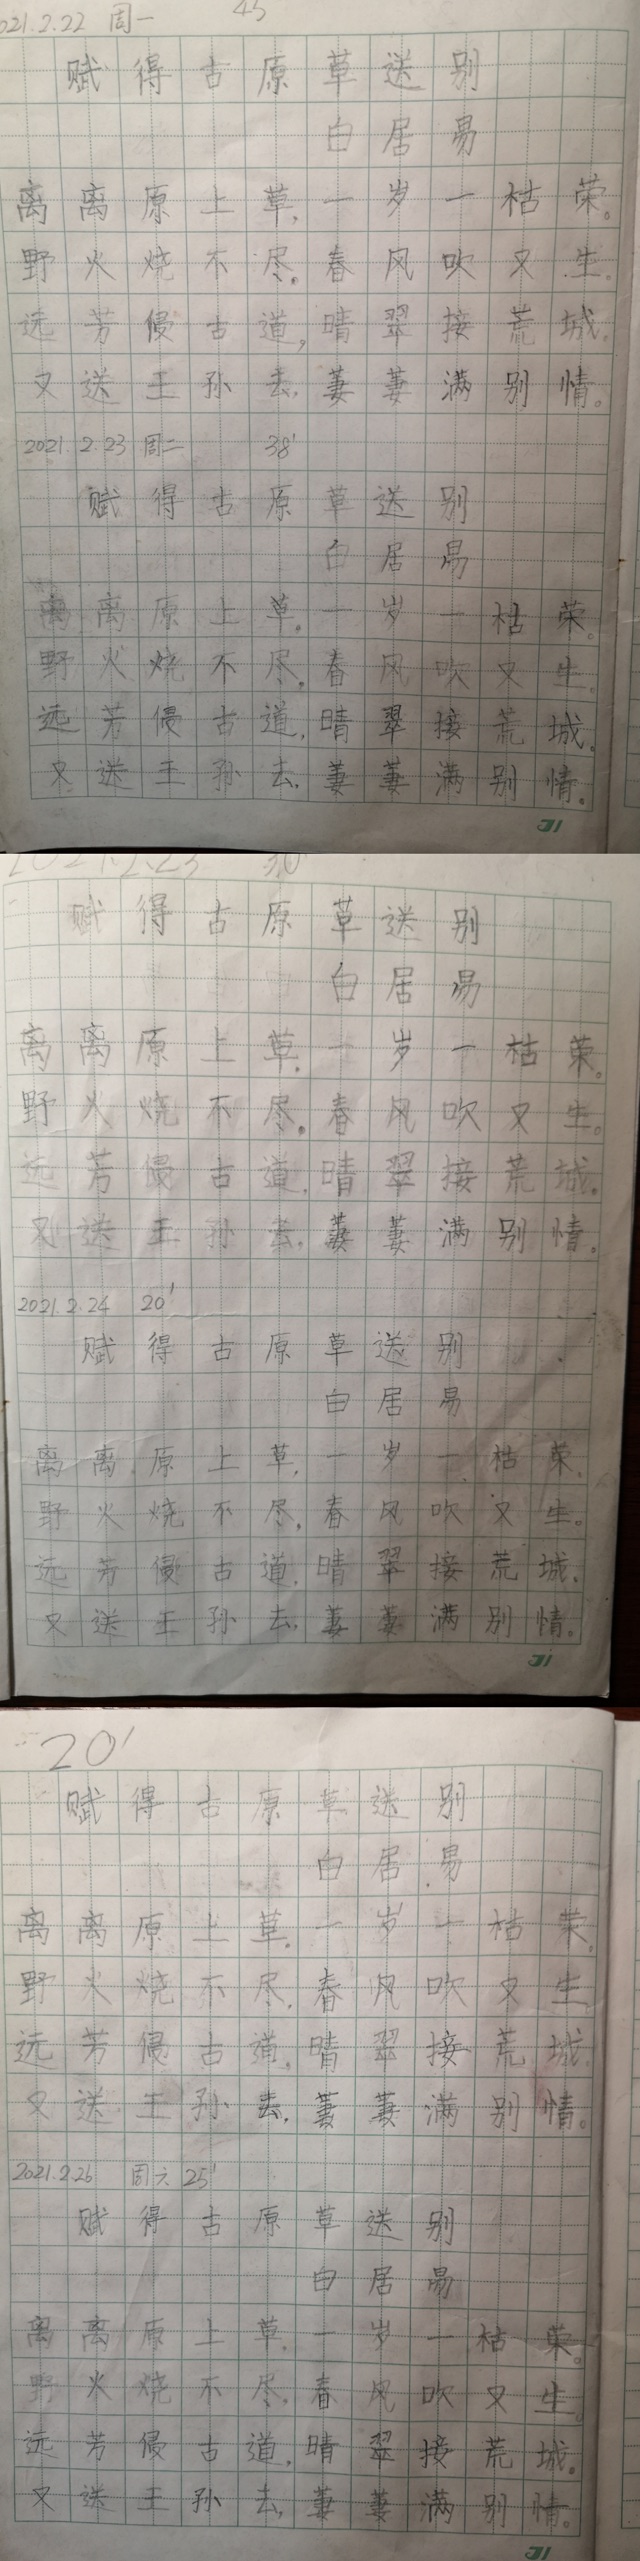 2021.2.22 周一 45
赋得古原草送别
白居易
离离原上草,一岁一枯荣。
野火烧不尽。春风吹又生。
远芳侵古道,晴翠接荒城。
又送王孙去,萋萋满别情。
2021.2.23 周二 38'
赋得古原草送别
白居易
离离原上草。一岁一枯荣。
野火烧不尽,春风吹又生。
远芳侵古道,晴翠接荒城。
又送王孙去,萋萋满别情。
2021.2.23 30'
赋得古原草送别
白居易
离离原上草,一岁一枯荣。
野火烧不尽。春风吹又生。
远芳侵古道,晴翠接荒城。
又送王孙去,萋萋满别情。
2021.2.24 20'
赋得古原草送别
白居易
离离原上草,一岁一枯荣。
野火烧不尽,春风吹又生。
远芳侵古道,晴翠接荒城。
又送王孙去,萋萋满别情。
20'
赋得古原草送别
白居易
离离原上草。一岁一枯荣。
野火烧不尽,春风吹又生
远芳侵古道,晴翠接荒城。
又送王孙去,萋萋满别情。
2021.2.26 周六 25'
赋得古原草送别
白居易
离离原上草,一岁一枯荣。
野火烧不尽,春风吹又生。
远芳侵古道,晴翠接荒城。
又送王孙去,萋萋满别情。